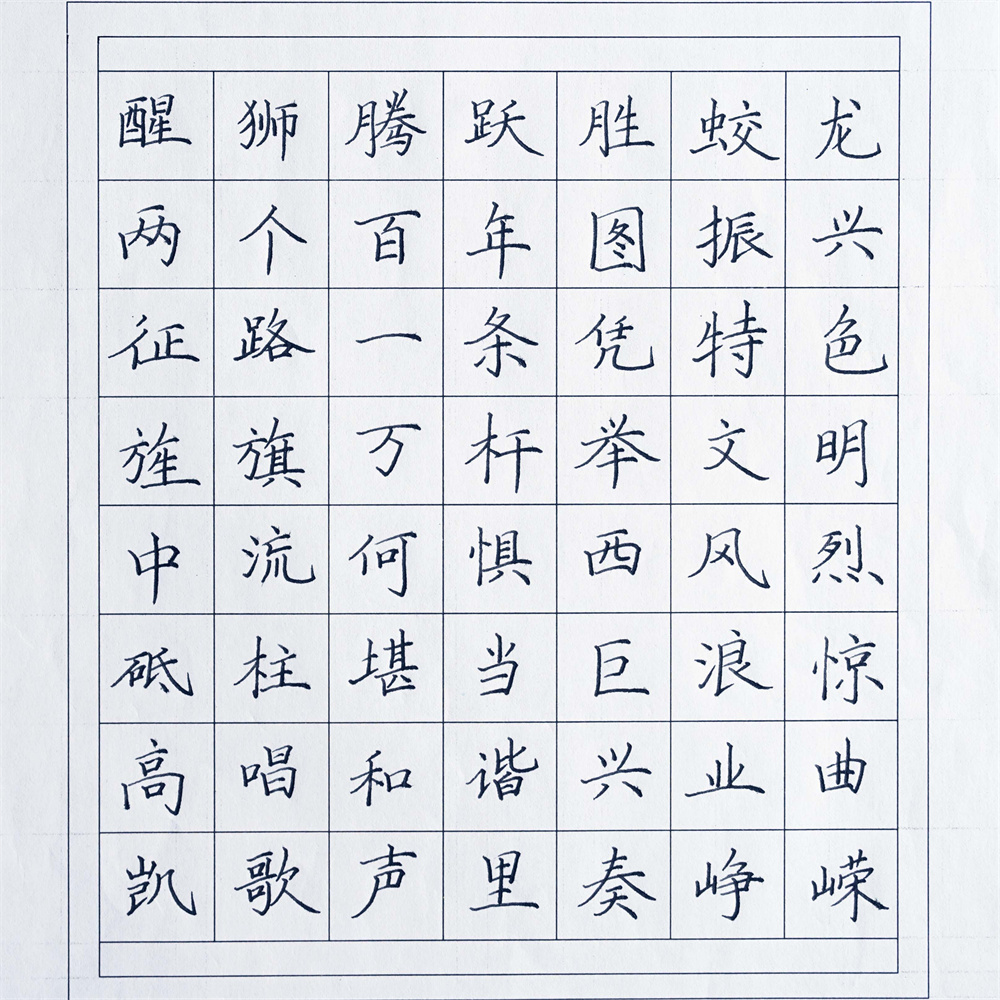 醒狮腾跃胜蛟龙
两个百年图振兴
征路一条凭特色
旌旗万杆举文明
中流何惧西风烈
砥柱堪当巨浪惊
高唱和谐兴业曲
凯歌声里奏峥嵘